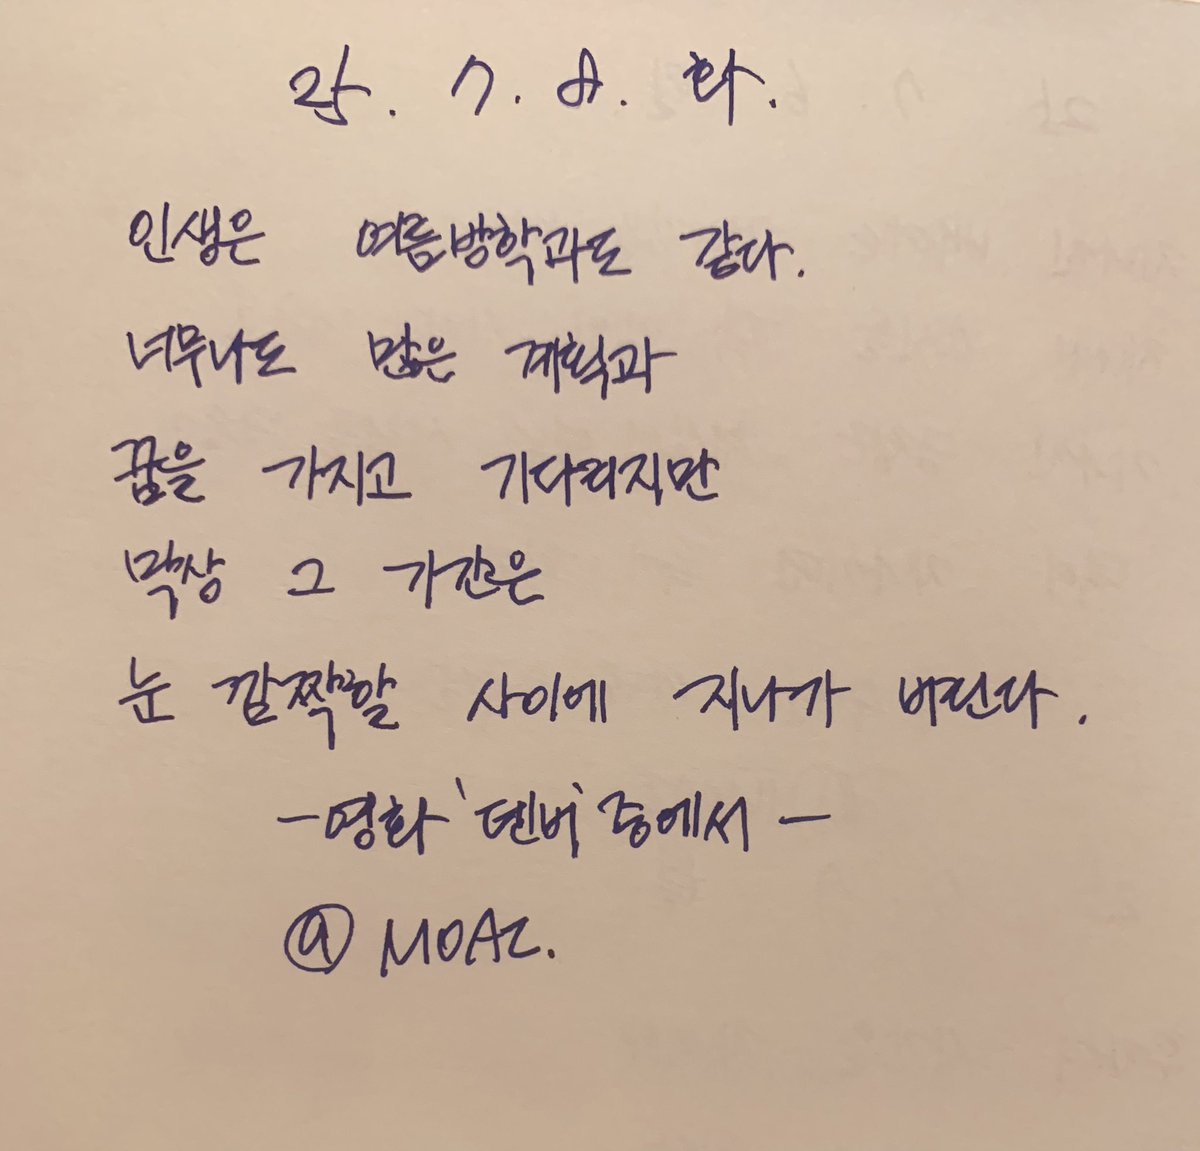 인생은 여름방학과도 같다.
너무나도 많은 계획과
꿈을 가지고 기다리지만
막상 그 기간은
눈 깜짝할 사이에 지나가 버린다.
-영화 '덴버' 중에서-
@ MOAC.